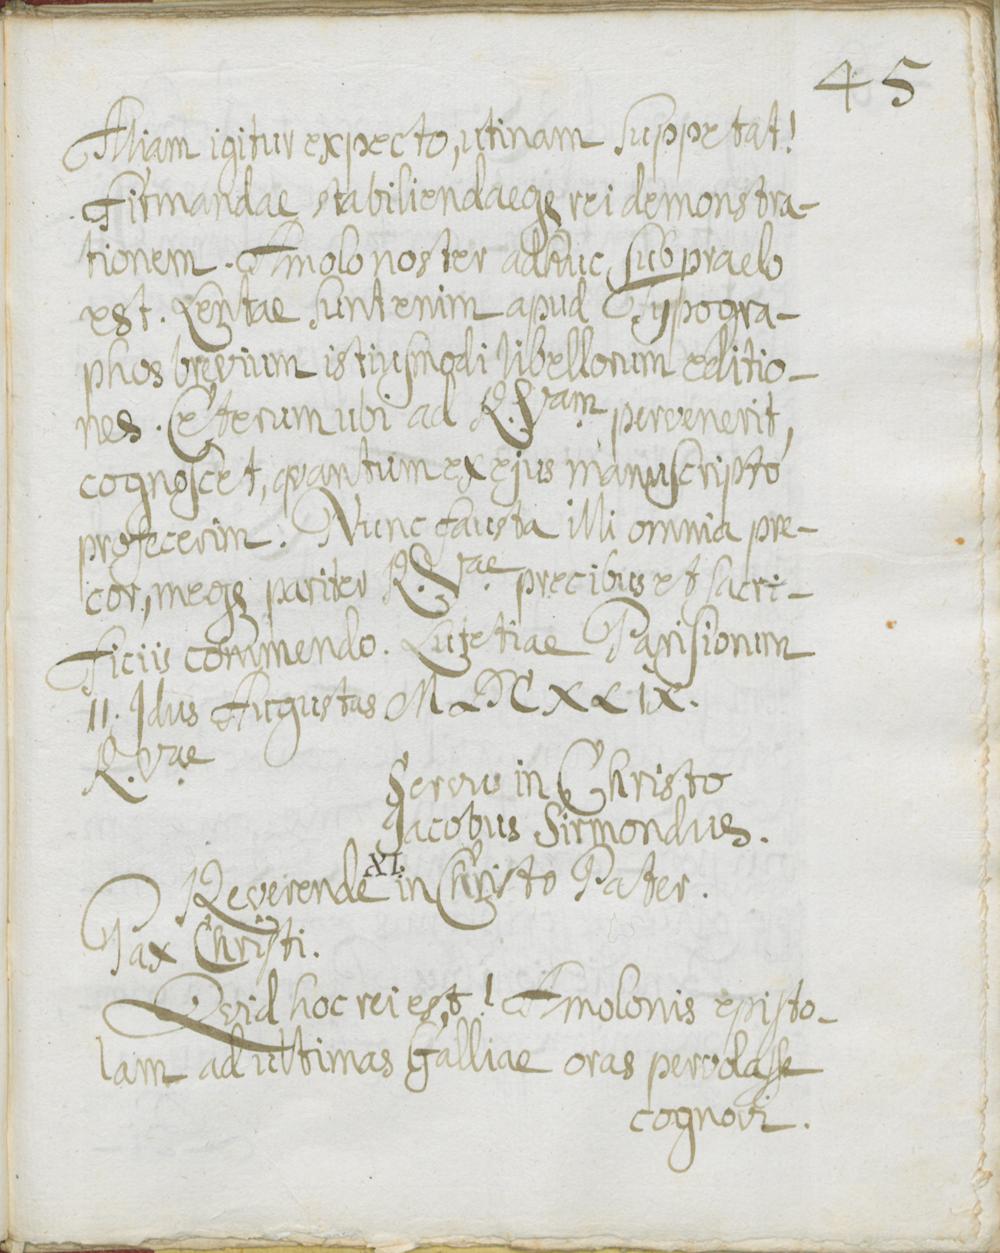 45
Aliam igitur expecto, utinam suppetat!
Firmandae stabiliendaeqꝫ rei demonstra-
tionem. Amolo noster adhuc sub praelo
est. Lentae sunt enim apud Typogra-
phos brevium istiusmodi libellorum editio-
nes. Ceterum ubi ad R. Vam pervenerit,
cognoscet, quantum ex ejus manuscripto
profecerim. Nunc fausta illi omnia pre-
cor, meqꝫ pariter R. Vae precibus et sacri-
ficiis commendo. Lutetiae Parisiorum
II. Idus Augustas MDCXLIX.
R. Vae
Servus in Christo
Jacobus Sirmondus.
XI.
Reverende in Christo Pater.
Pax Christi.
Quid hoc rei est! Amolonis episto-
lam ad ultimas Galliae oras pervolasse
cognovi.